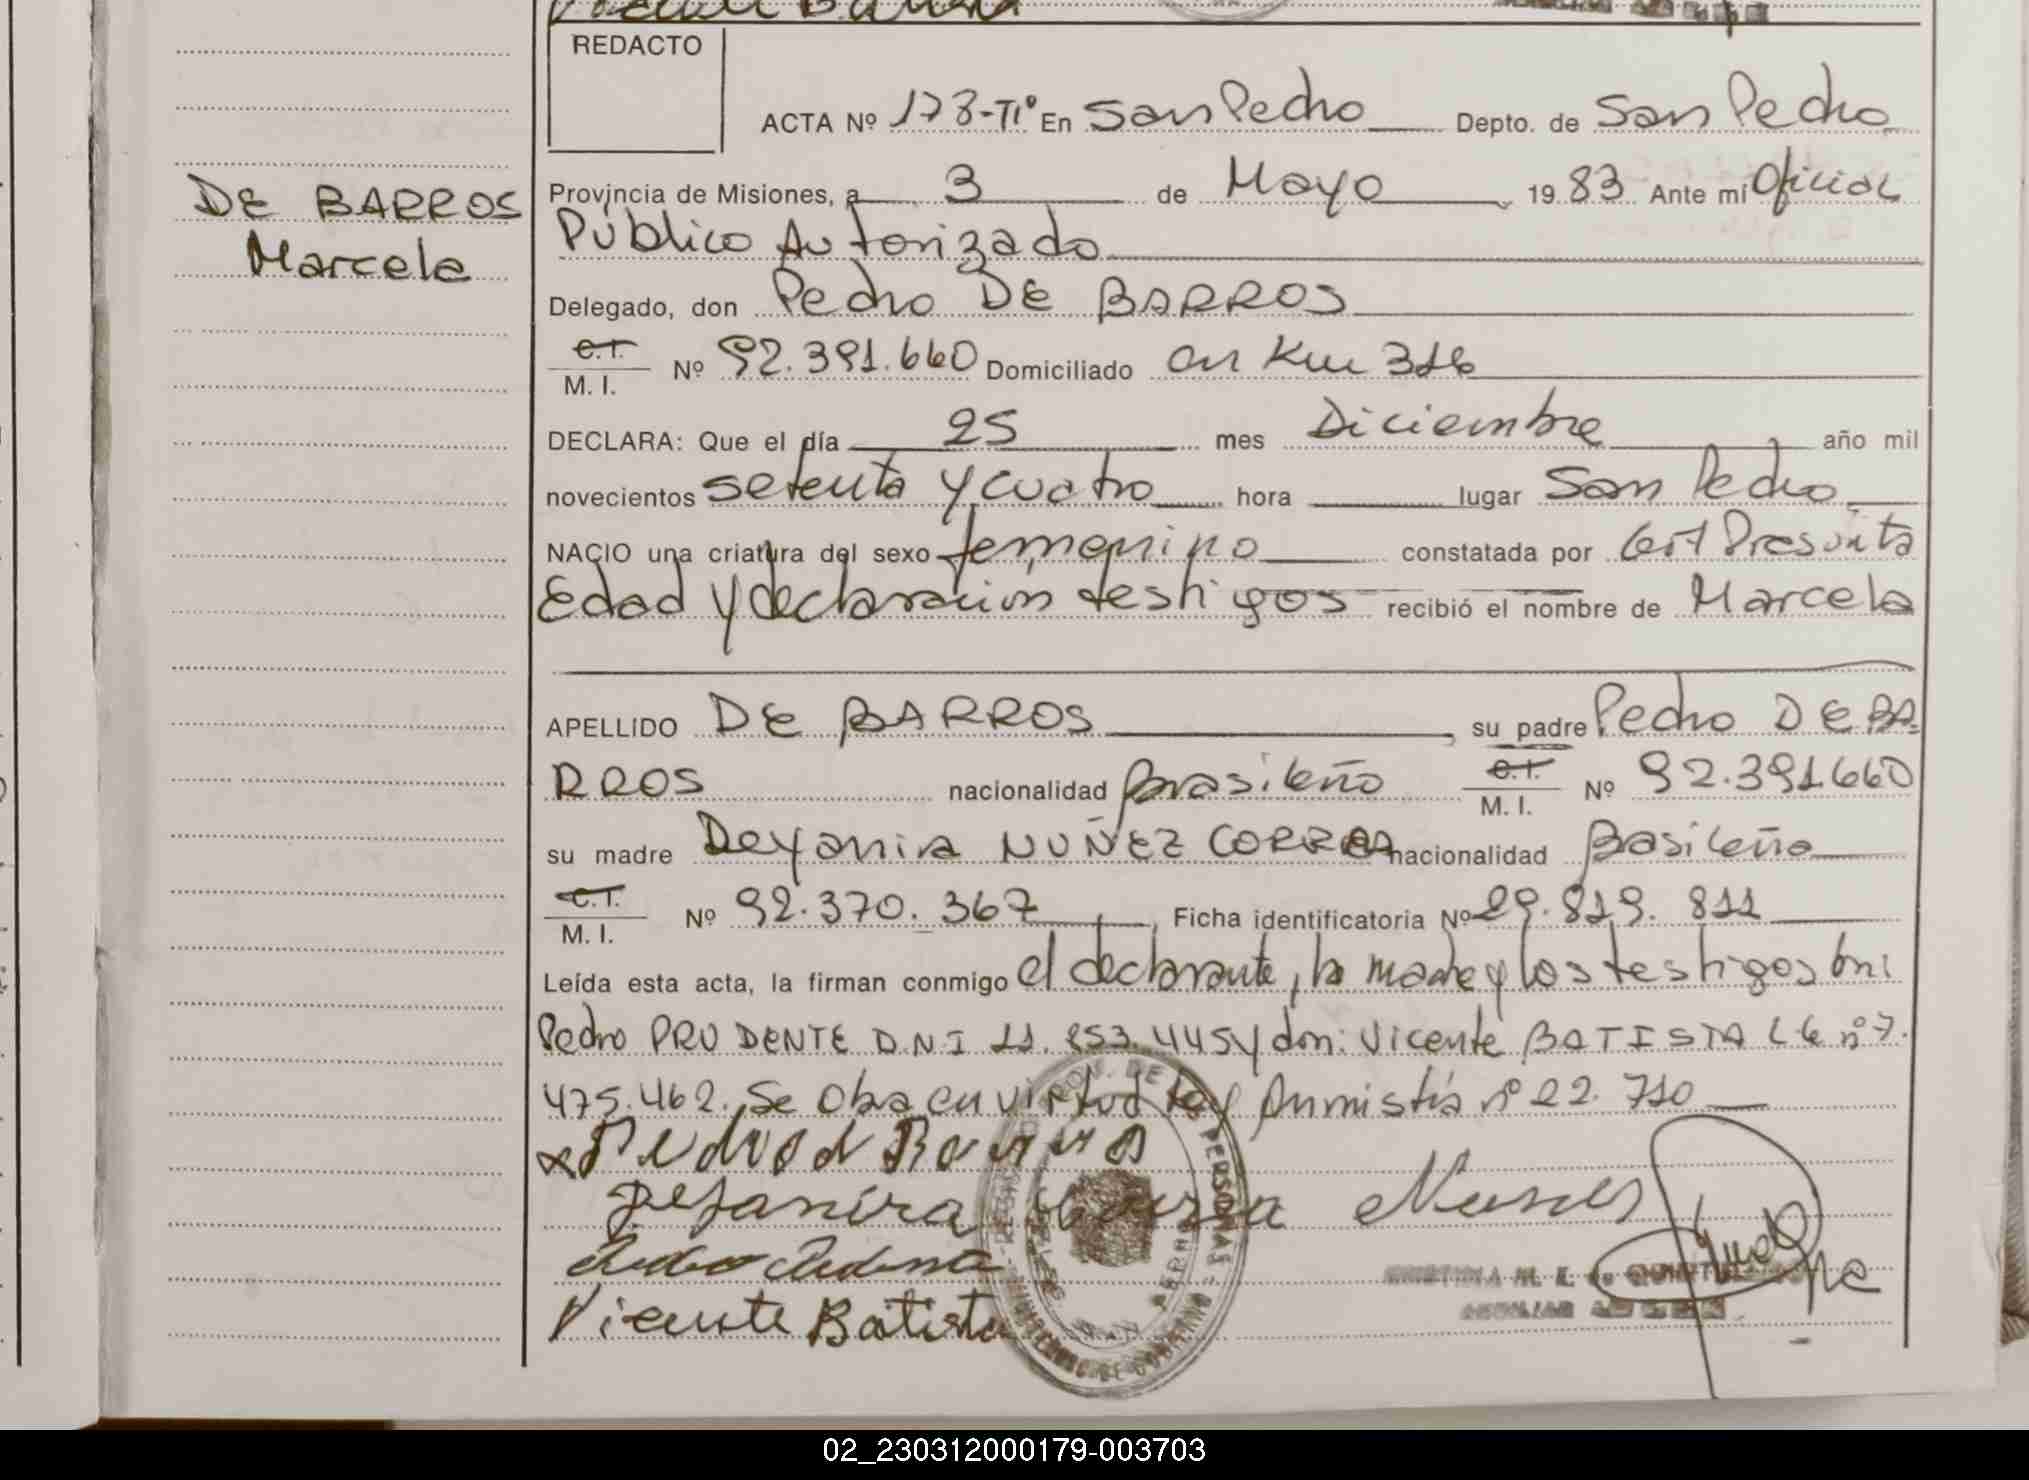 REDACTO
ACTA Nº 178-Tº En San Pedro Depto. de San Pedro
DE BARROS
Marcela
Provincia de Misiones, a 3 de Mayo 1983 Ante mí Oficial
Público Autorizado
Delegado, don Pedro DE BARROS
C.I. M. I. Nº 92.391.660 Domiciliado en Km 316
DECLARA: Que el día 25 mes Diciembre año mil
novecientos setenta y cuatro hora lugar San Pedro
NACIO una criatura del sexo femenino constatada por Cert Presunta
Edad y declaración testigos recibió el nombre de Marcela
APELLIDO DE BARROS su padre Pedro DE BA-
RROS nacionalidad Brasileño C.I. M. I. Nº 92.391660
su madre Deyanira NUÑEZ CORREA nacionalidad Basileña
C.I. M. I. Nº 92.370.367, Ficha identificatoria Nº 29.819.811
Leída esta acta, la firman conmigo el declarante, la madre y los testigos don:
Pedro PRUDENTE D.N.I 11.253.445 y don: Vicente BATISTA L.E nº 7.
475.462. Se Obra en virtud Ley Ammistía nº 22.710
Pedro d Barros
Dejanira Correa Nunes
Pedro Prudente
Vicente Batista
PROV. DE
PERSONAS
02_230312000179-003703